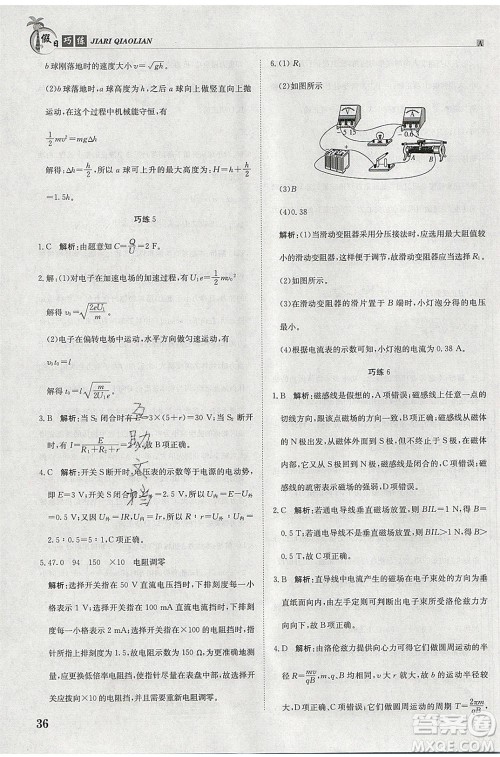 假日巧练 JIARI QIAOLIAN
A
b 球刚落地时的速度大小 v=√gh.
(2)b 球落地时,a 球高度为 h,之后 a 球向上做竖直上抛
运动,在这个过程中机械能守恒,有
1/2 mv²=mgΔh
解得:Δh=h/2,所以 a 球可上升的最大高度为 H=h+h/2
=1.5h.
巧练 5
1.C 解析:由题意知 C=Q/U=2 F.
2.解析:(1)对电子在加速电场的加速过程,有 U₁e=1/2 mv²
解得 v₀=√(2eU₁/m)
(2)电子在偏转电场中运动,水平方向做匀速运动,有
v₀t=l
解得 t=l√(m/2U₁e)
3.B 解析:当 S₂ 闭合时有 E=3×(5+r)=30 V,当 S₂ 断开
时,有 I=E/(R₁+R₂+r),故 B 项正确.
4.C 解析:开关 S 断开时,电压表的示数等于电源的电动势,
即 E=3 V,开关 S 闭合时,U外=2.5 V,所以 U内=E-U外
=0.5 V,因为 U外=IR,U内=Ir,所以 R∶r=U外∶U内
=2.5∶0.5=5∶1,C 项正确.
5.47.0 94 150 ×10 电阻调零
解析:选择开关指在 50 V 直流电压挡时,下排刻度线每一小
格表示 1 V;选择开关指在 100 mA 直流电流挡时,下排刻
度线每一小格表示 2 mA;选择开关指在×10 电阻挡时,每
一小格表示 10 Ω;指针偏角过大,说明电阻较小,要减小倍
率,尽量让指针所在位置处在表盘中部,使测量更准确,所以
选择开关应拨向×10 的电阻挡,并且需要重新电阻调零.
互
助
相
当
36
6.(1)R₁
(2)如图所示
5 15
-0.6
A
B
(3)B
(4)0.38
解析:(1)当滑动变阻器采用分压接法时,应用最大阻值较小
的变阻器,故滑动变阻器应选 R₁.
(2)如图所示
(3)滑动变阻器的滑片置于 B 端时,小灯泡的分压最小,比较
安全.
(4)根据电流表的示数可知,小灯泡的电流为 0.38 A.
巧练 6
1.B 解析:磁感线是假想的,A 项错误;磁感线上任意一点的
切线方向,都跟该点磁场的方向一致,B 项正确;磁铁的磁感
线在外部由 N 极到 S 极,从磁体外部的 N 极出发,从磁体外
部到 S 极,内部从 S 极到 N 极,C 项错误;磁感线是为了形
象地表示磁场而假想的线,磁感线的疏密表示磁场的强弱,D
项错误.
2.C 解析:若通电导线在磁场中放置的方向为 BIL>1 N,B
项错误;若通电导线在磁场中放置的方向为 BIL>1 N,A 项
错误,C 项正确.
3.B 解析:直导线中电流产生的磁场在电子束处的方向为
垂直于纸面向外,则由左手定则可知电子所受洛伦兹力方向
为向下,所以电子束会向下偏转,B 项正确.
4.D 解析:由洛伦兹力提供向心力可得它们做圆周运动的半
径 R=mv/qB,它们的动量大小相等,磁场相同,电荷量不同,R
不一定相等,A 项错误;它们做圆周运动的周期 T=2πm/qB
答案圈
MXQE.COM